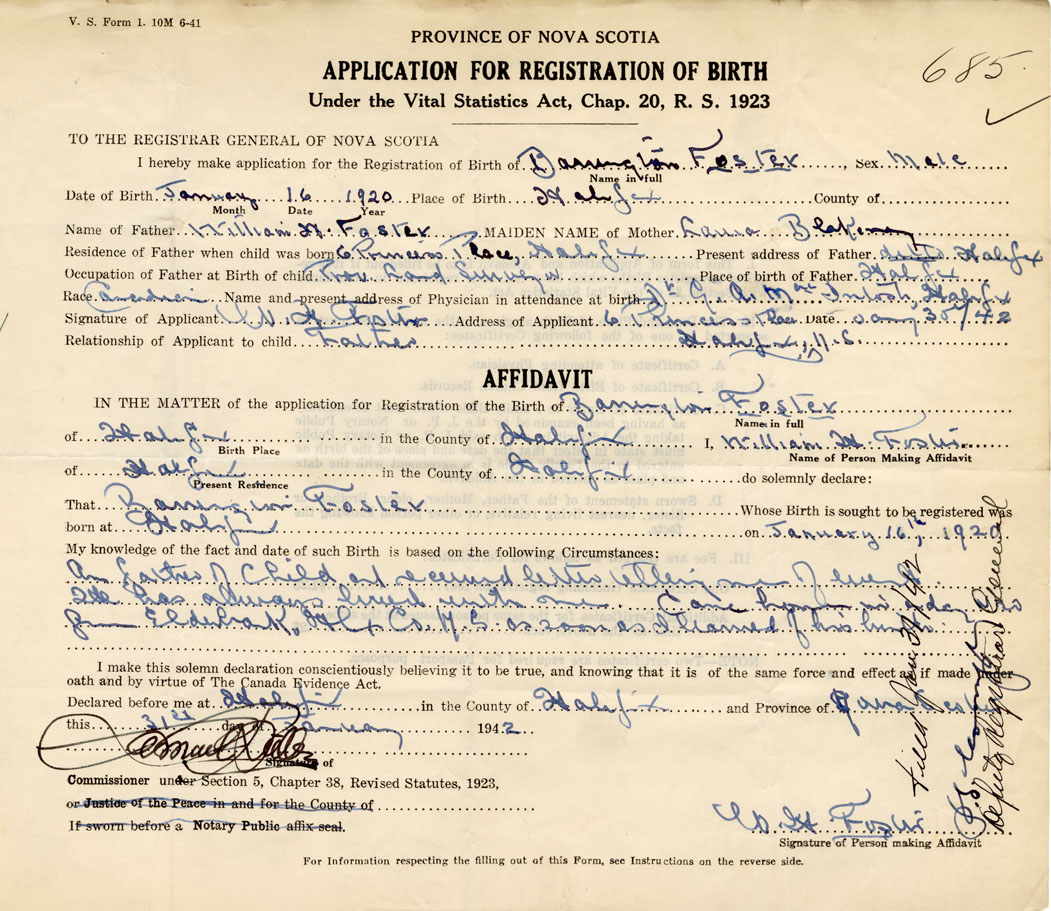 V. S. Form 1. 10M 6-41
PROVINCE OF NOVA SCOTIA
685
APPLICATION FOR REGISTRATION OF BIRTH
Under the Vital Statistics Act, Chap. 20, R. S. 1923
TO THE REGISTRAR GENERAL OF NOVA SCOTIA
I hereby make application for the Registration of Birth of Barrington Foster, Sex Male
Name in full
Date of Birth January 16 1920 Place of Birth Halifax County of
Month Date Year
Name of Father William H. Foster MAIDEN NAME of Mother Laura Blakeney
Residence of Father when child was born 6 Princess Place, Halifax Present address of Father Halifax
Occupation of Father at Birth of child Prov. Land Surveyor Place of birth of Father Halifax
Race Canadian Name and present address of Physician in attendance at birth Dr. G. A. MacIntosh, Halifax
Signature of Applicant W. H. Foster Address of Applicant 6 Princess Place Date Jany 30th/42
Relationship of Applicant to child Father Halifax, N.S.
AFFIDAVIT
IN THE MATTER of the application for Registration of the Birth of Barrington Foster
Name in full
of Halifax in the County of Halifax I, William H. Foster
Birth Place Name of Person Making Affidavit
of Halifax in the County of Halifax do solemnly declare:
Present Residence
That Barrington Foster Whose Birth is sought to be registered was
born at Halifax on January 16th, 1920
My knowledge of the fact and date of such Birth is based on the following Circumstances:
Am father of Child and received letter telling me of event.
He has always lived with me. Came home in a day or so
from Elderbank, Hfx Co. N.S. as soon as I learned of his birth.
I make this solemn declaration conscientiously believing it to be true, and knowing that it is of the same force and effect as if made under
oath and by virtue of The Canada Evidence Act.
Declared before me at Halifax in the County of Halifax and Province of Nova Scotia
this 31st day of January 1942
Signature of
Commissioner under Section 5, Chapter 38, Revised Statutes, 1923,
or Justice of the Peace in and for the County of
If sworn before a Notary Public affix seal.
W. H. Foster
Signature of Person making Affidavit
Filed Jany 31/1942
Deputy Registrar General
For Information respecting the filling out of this Form, see Instructions on the reverse side.